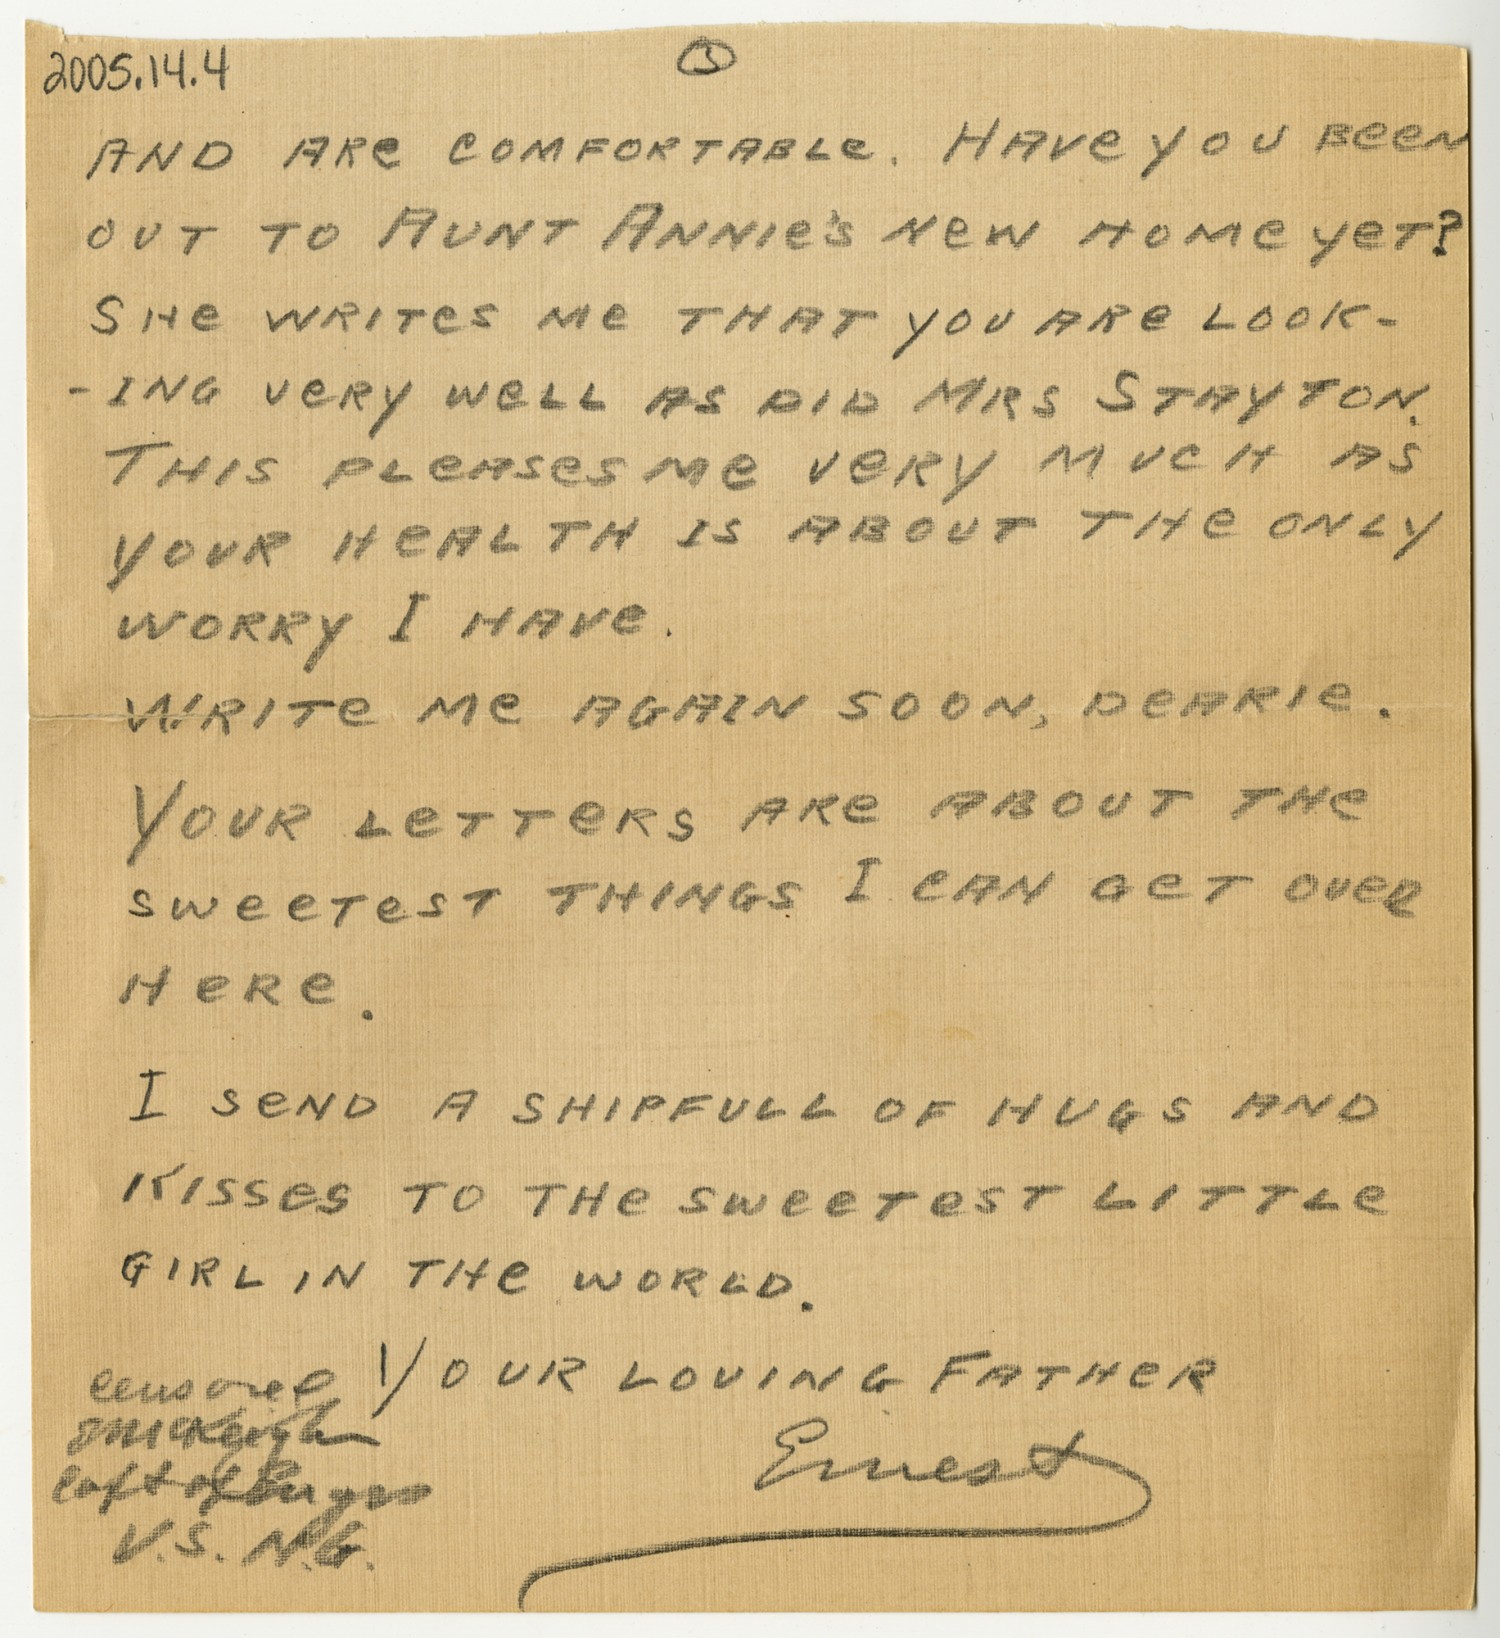 2005.14.4
AND ARE COMFORTABLE. HAVE YOU BEEN
OUT TO AUNT ANNIE'S NEW HOME YET?
SHE WRITES ME THAT YOU ARE LOOK-
-ING VERY WELL AS DID MRS STAYTON.
THIS PLEASES ME VERY MUCH AS
YOUR HEALTH IS ABOUT THE ONLY
WORRY I HAVE.
WRITE ME AGAIN SOON, DEARIE.
YOUR LETTERS ARE ABOUT THE
SWEETEST THINGS I CAN GET OVER
HERE.
I SEND A SHIPFULL OF HUGS AND
KISSES TO THE SWEETEST LITTLE
GIRL IN THE WORLD.
YOUR LOVING FATHER
Ernest
censored
Capt of
U.S. N.G.